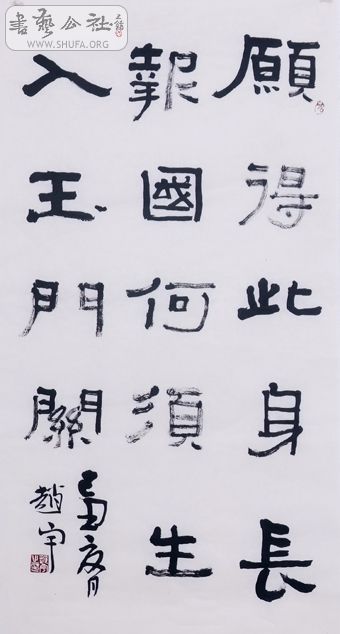 書藝公社
WWW.SHUFA.ORG
願得此身長
報國何須生
入玉門關
己丑夏月
趙宇